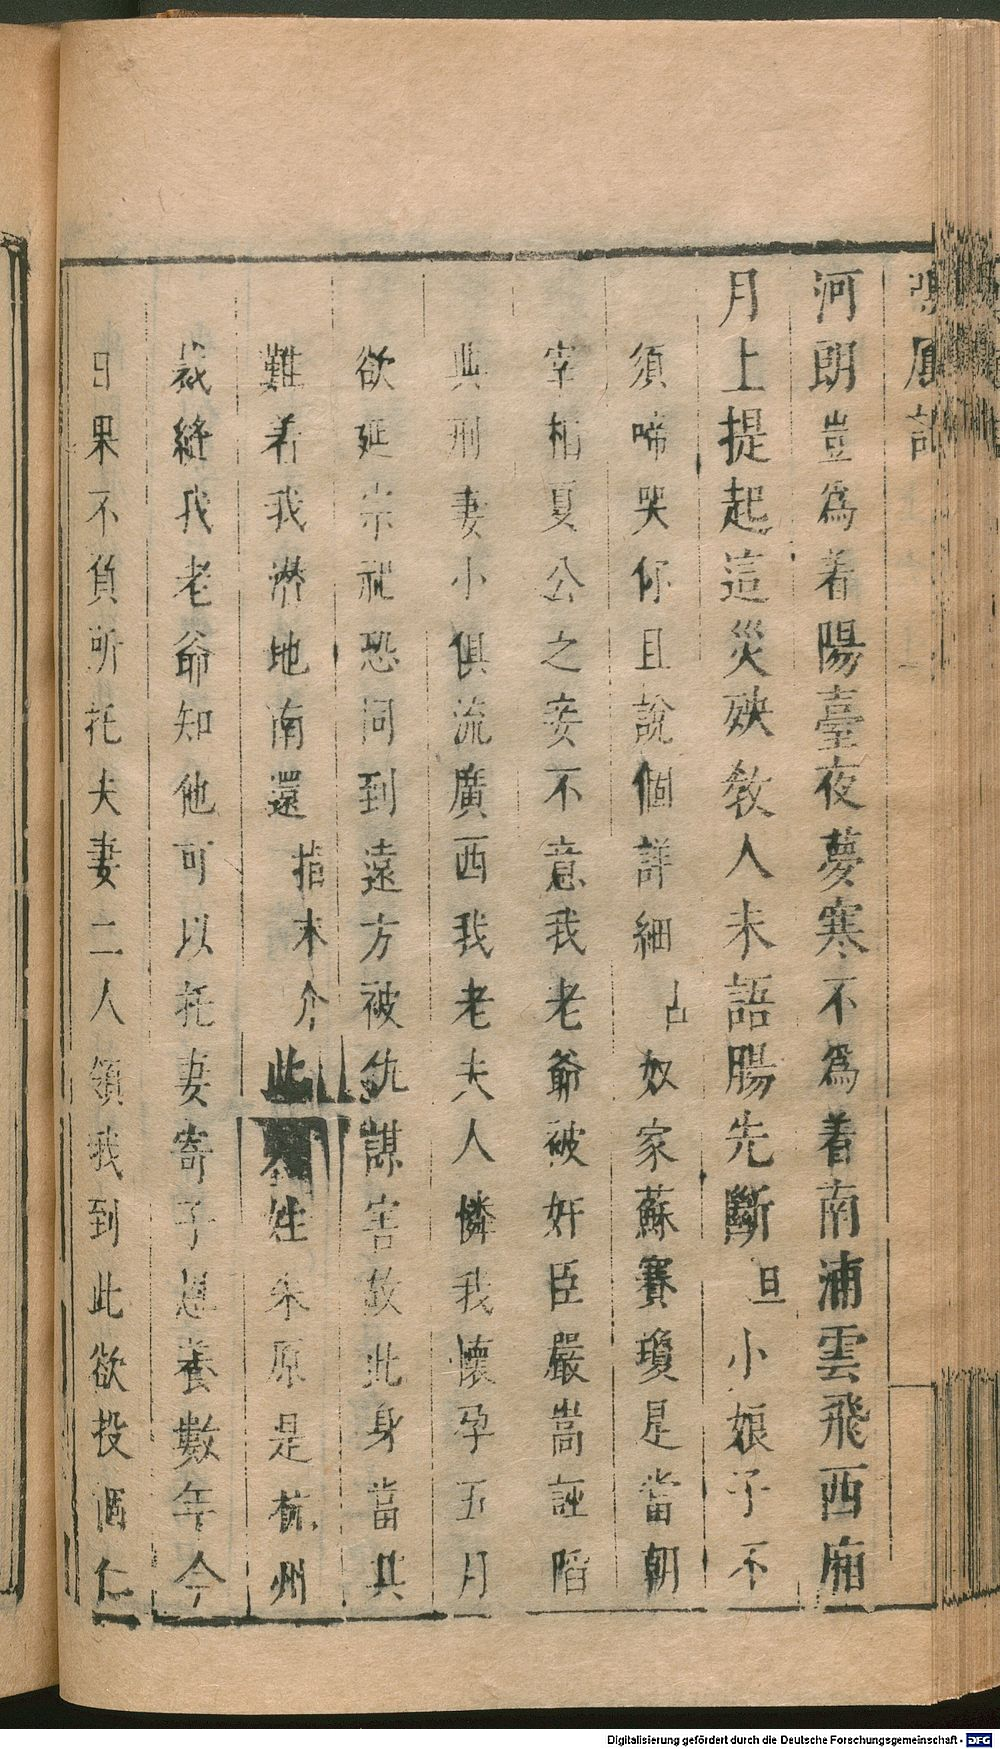 鳴鳳記
河朗豈爲着陽臺夜夢寒不爲着南浦雲飛西廂
月上提起這災殃教人未語腸先斷旦小娘子不
須啼哭你且說個詳細占奴家蘇賽瓊是當朝
宰相夏公之妾不意我老爺被奸臣嚴嵩誣陷
典刑妻小俱流廣西我老夫人憐我懷孕五月
欲延宗祀恐同到遠方被仇謀害故此身當其
難着我潛地南還指末介此姓朱原是杭州
裁縫我老爺知他可以托妻寄子恩養數年今
日果不負所托夫妻二人領我到此欲投個仁
Digitalisierung gefördert durch die Deutsche Forschungsgemeinschaft - DFG